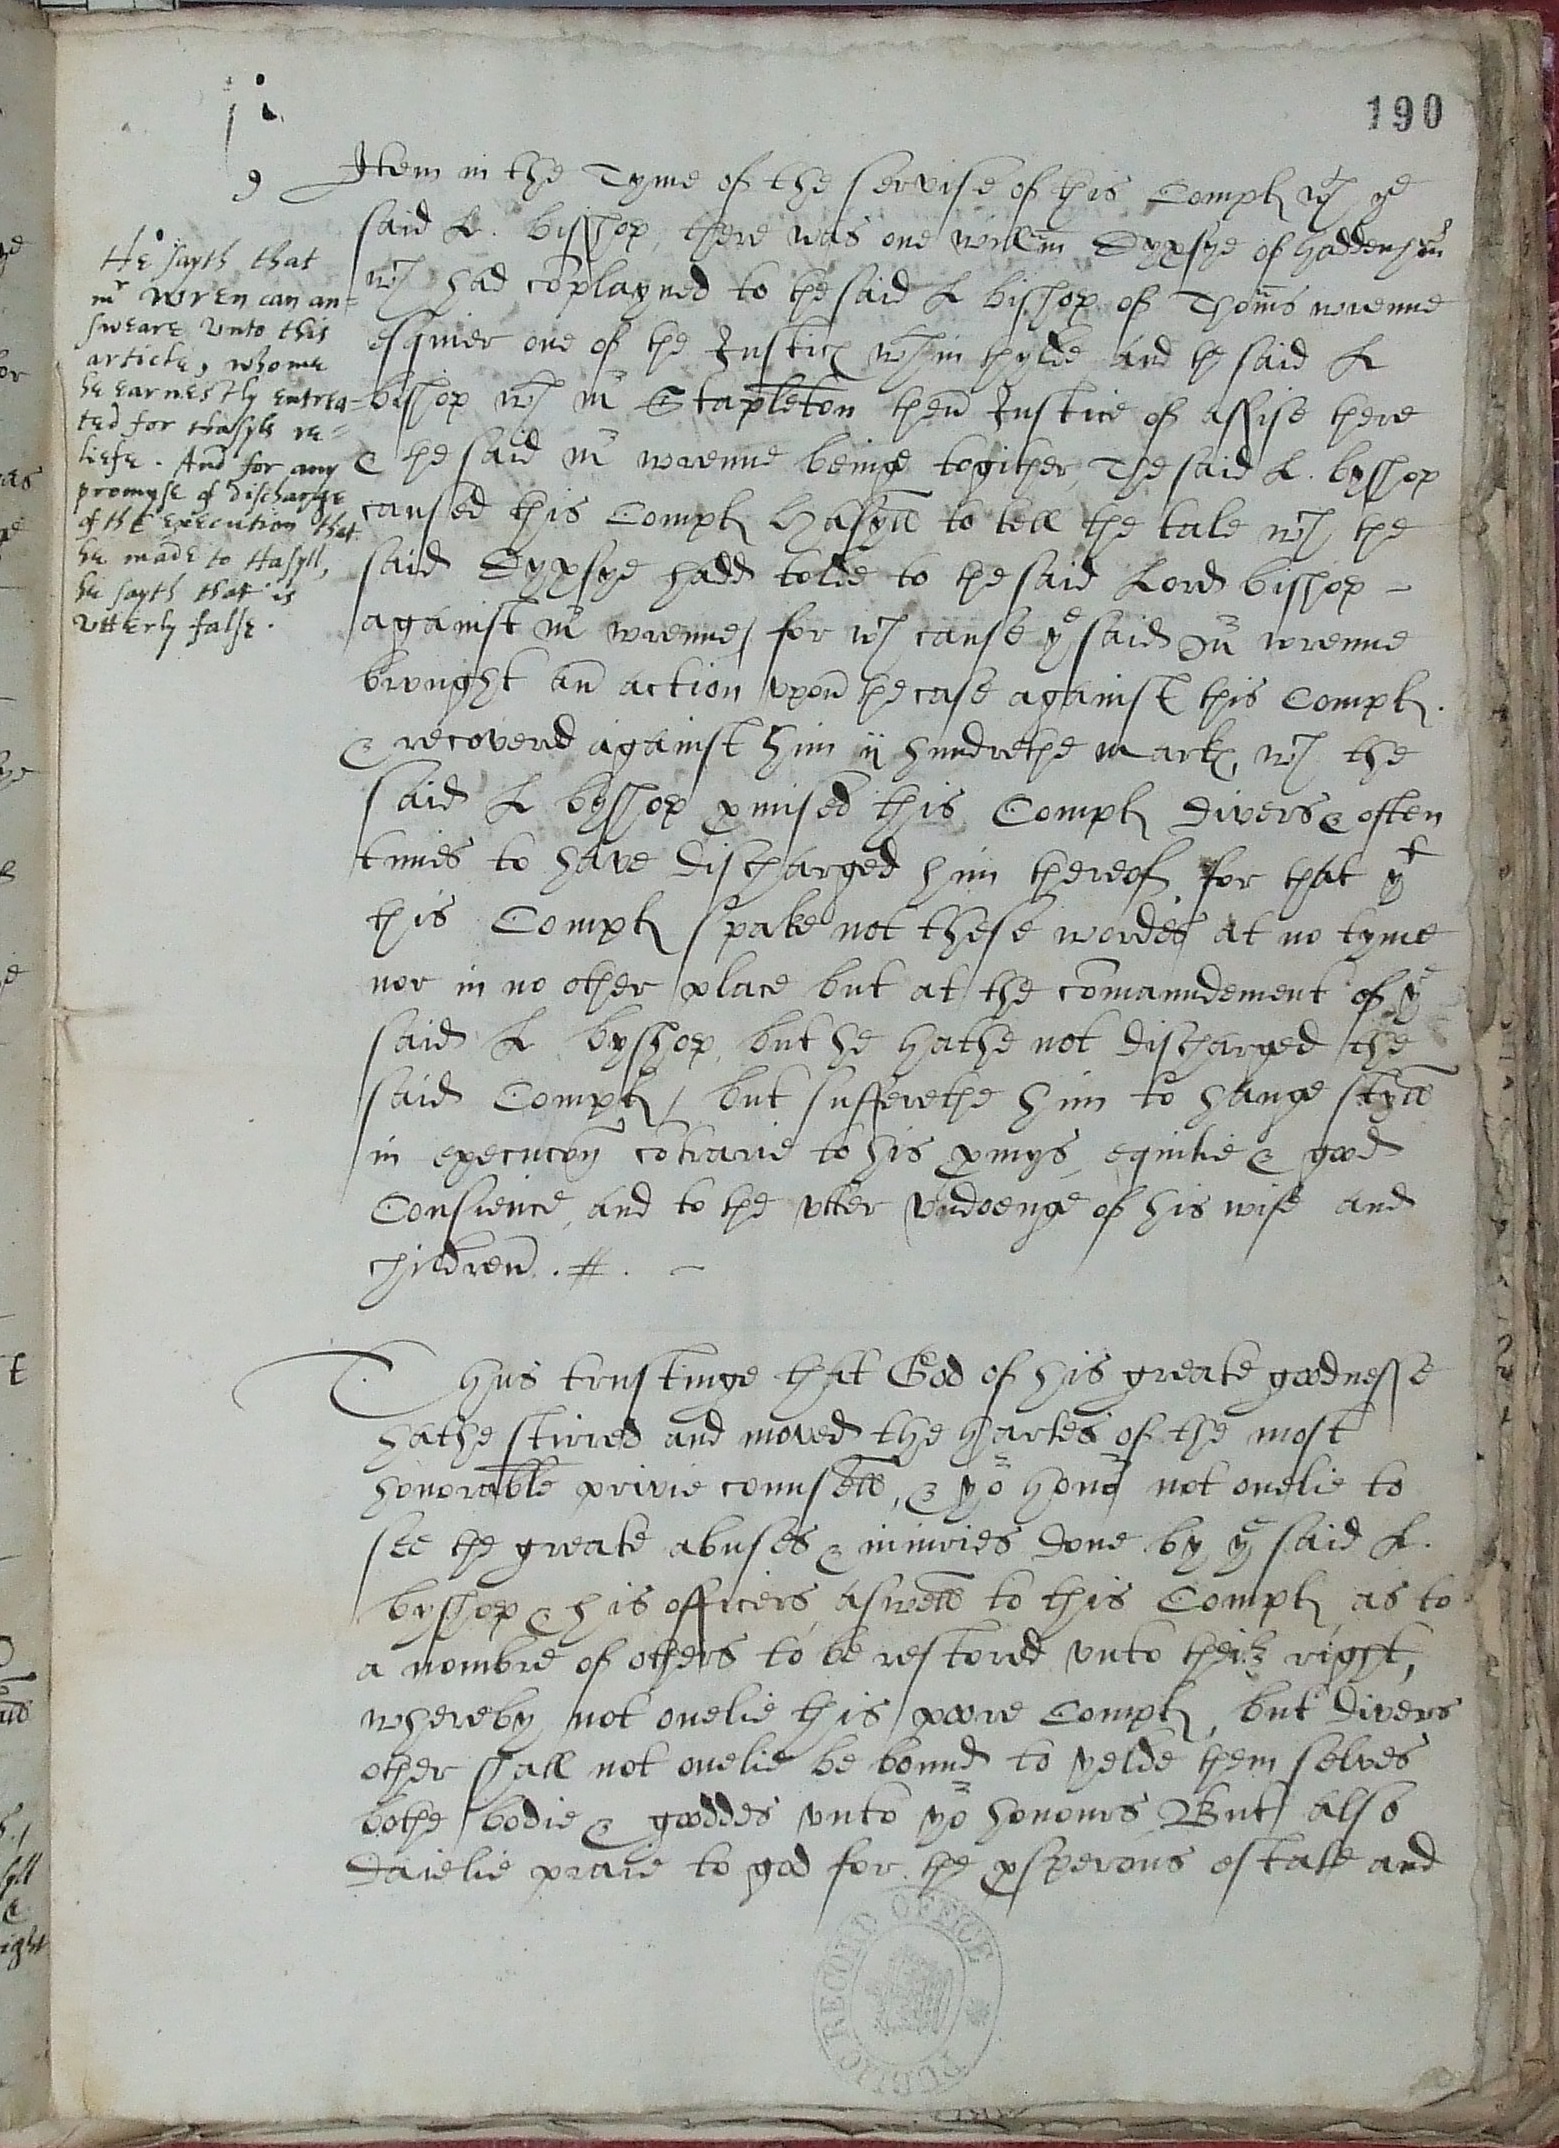 190
9
Item in the Tyme of the servise of this Complt wch ye
said L. bisshop, there was one Willm Dypsye of haddenhm
wch had coplayned to the said L bisshop of Thoms wrenne
esquier one of the Justics wthin thylde and the said L
bisshop wth mr Stapleton then Justice of assise there
& the said mr wrenne beinge togither, The said L. bysshop
caused this Complt Hasyll to tell the tale wch the
said Dypsye hadd tolde to the said Lord bisshop -
against mr wrenne / for wch cause ye said mr wrenne
brought an action vpon the case against this Complt.
& recovered against him ij hundrethe marks, wch the
said L bysshop pmised this Complt divers & often
times to have discharged him thereof, for that yt
this Complt spake not these wordes at no tyme
nor in no other place but at the comaundement of ye
said L bysshop, but he hathe not discharged the
said Complt / but sufferethe him to hange styll
in execucon cotrarie to his pmys, equitie & good
Consience, and to the vtter vndoenge of his wife and
children . #. -
He sayth that
mr Wren can an=
sweare vnto this
article, whome
he earnestly entrea=
ted for Hasyls re=
liefe. And for any
promyse of discharge
of the execution that
he made to Hasyll,
he sayth that is
vtterly false.
Thus trustinge that God of his greate goodnesse
hathe stirred and moved the hartes of the most
honorable privie counsell, & yor honors not onelie to
see the greate abuses & iniuries done by ye said L.
bysshop & his officers, aswell to this Complt as to
a nombre of others to be restored vnto their right,
whereby not onelie this poore Complt, but divers
other shall not onelie be bound to yelde them selves
bothe bodie & gooddes vnto yor honours But also
Daielie praie to god for the psperous estate and
PUBLIC RECORD OFFICE